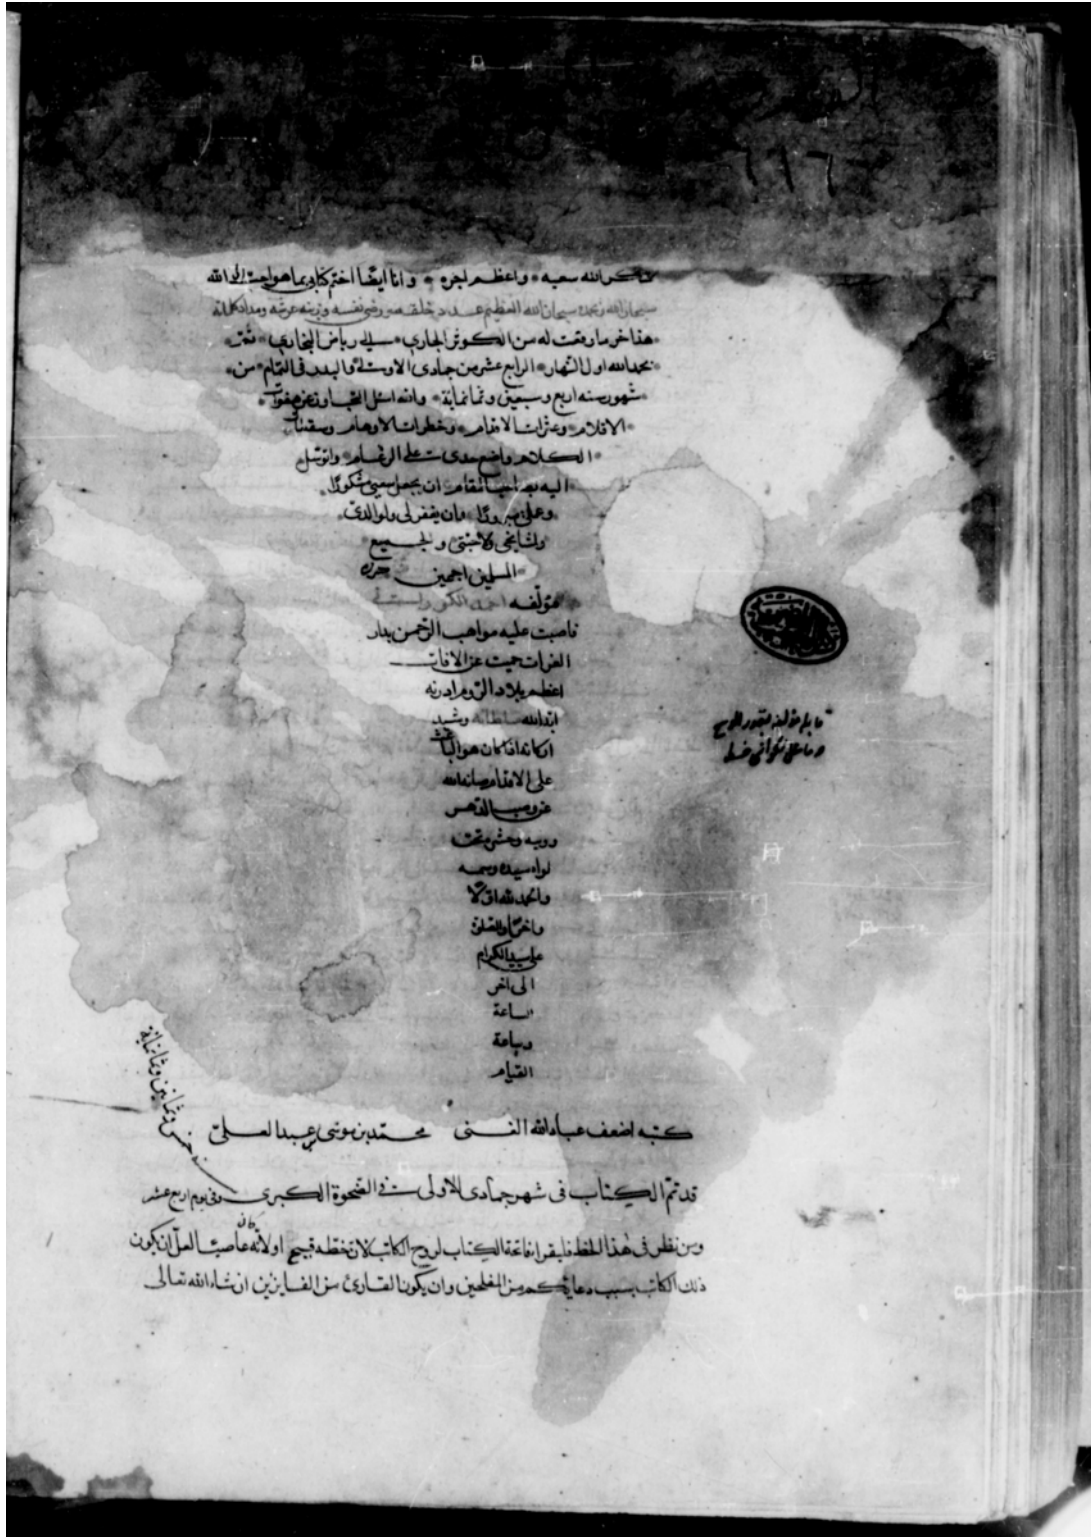 ٦١٦
شكر الله سعيه واعظم اجره وانا ايضا اختم كتابي بما هو احب الى الله
سبحان الله وبحمده سبحان الله العظيم عدد خلقه ورضى نفسه وزنة عرشه ومداد كلماته
هذا اخر ما وفقت له من الكوثر الجاري الى رياض البخاري تمت
بحمد الله اول النهار الرابع عشر من جمادى الاولى والبدر في التمام من
شهور سنه اربع وسبعين وثمانماية والله اسئل التجاوز عن هفوات
الاقلام وعثرات الاقدام وخطرات الاوهام وسقطات
الكلام واضع خدي على الرغام واتوسل
اليه ان يجعل سعيي مشكورا
وعملي مبرورا وان يغفر لي ولوالدي
ولمشايخي ولاحبتي ولجميع
المسلمين اجمعين حرره
مؤلفه احمد الكوراني
فاضت عليه مواهب الرحمن بدار
الغزات حميت عن الافات
اعظم بلاد الروم ادرنه
ايد الله سلطانه وشيد
اركانه اذ كان هو الباعث
على الاقدام صانه الله
عن وصب الدهر
وريبه وحشره تحت
لواء سيده وحبيبه
والحمد لله اولا
واخرا والصلوة
على سيد الكرام
الى اخر
الساعة
وساعة
القيام
قابله مؤلفه
كتبه اضعف عباد الله الغنى محمد بن موسى بن عبد العلى
قد تم الكتاب فى شهر جمادى الاولى فى الضحوة الكبرى وفى يوم اربع عشر
سنه خمس وثمانين وثمانماية
ومن نظر فى هذا الخط فليقرا فاتحة الكتاب لروح الكاتب لان خطه قبيح او لانه كان عاصيا لعل ان يكون
ذلك الكاتب بسبب دعائكم من المفلحين وان يكون القارئ من الفايزين ان شاء الله تعالى